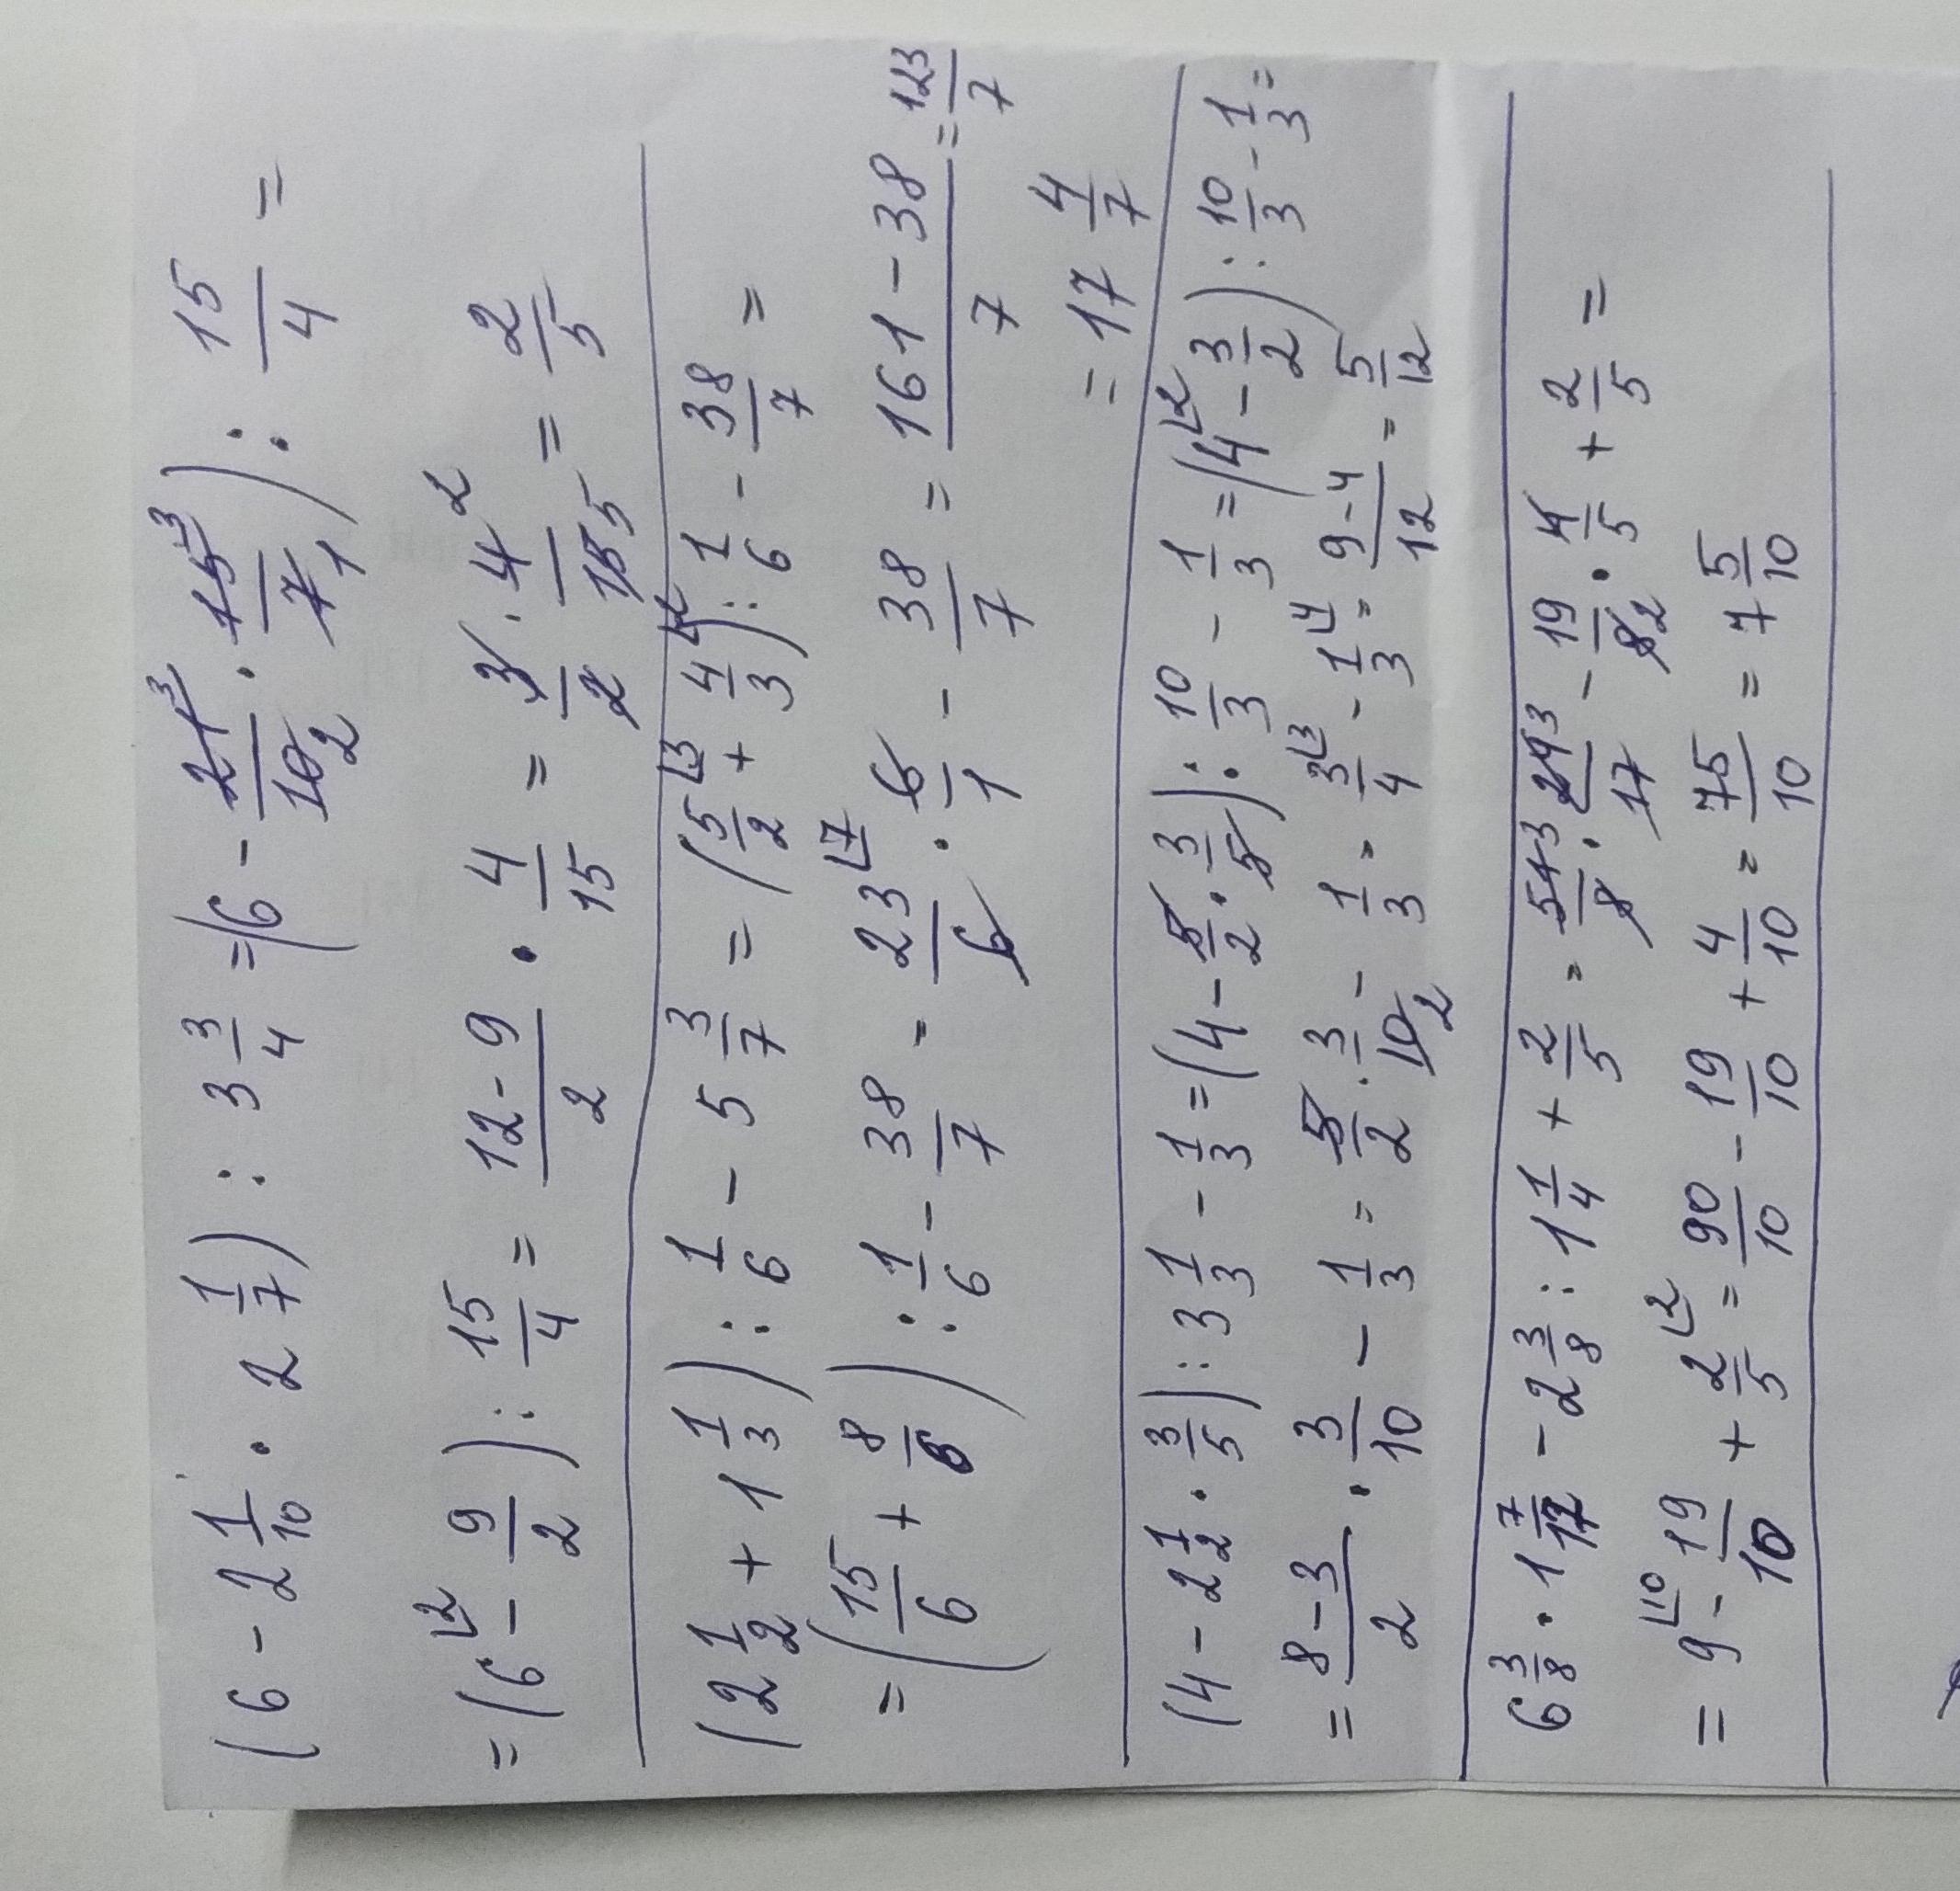 (6 - 2 1/10 · 2 1/7) : 3 3/4 = (6 - 21³/10₂ · 15³/7₁) : 15/4 =
= (6⌊2 - 9/2) : 15/4 = (12-9)/2 · 4/15 = 3/2 · 4²/15₅ = 2/5
(2 1/2 + 1 1/3) : 1/6 - 5 3/7 = (5/2⌊3 + 4/3⌊2) : 1/6 - 38/7 =
= (15/6 + 8/6) : 1/6 - 38/7 = 23⌊7/6 · 6/1 - 38/7 = (161-38)/7 = 123/7
= 17 4/7
(4 - 2 1/2 · 3/5) : 3 1/3 - 1/3 = (4 - 5/2 · 3/5) : 10/3 - 1/3 = (4⌊2 - 3/2) : 10/3 - 1/3 =
= (8-3)/2 · 3/10 - 1/3 = 5/2 · 3/10₂ - 1/3 = 3⌊3/4 - 1⌊4/3 = (9-4)/12 = 5/12
6 3/8 · 1 7/17 - 2 3/8 : 1 1/4 + 2/5 = 51³/8 · 24³/17 - 19/8₂ · 4/5 + 2/5 =
= 9⌊10 - 19/10 + 2⌊2/5 = 90/10 - 19/10 + 4/10 = 75/10 = 7 5/10